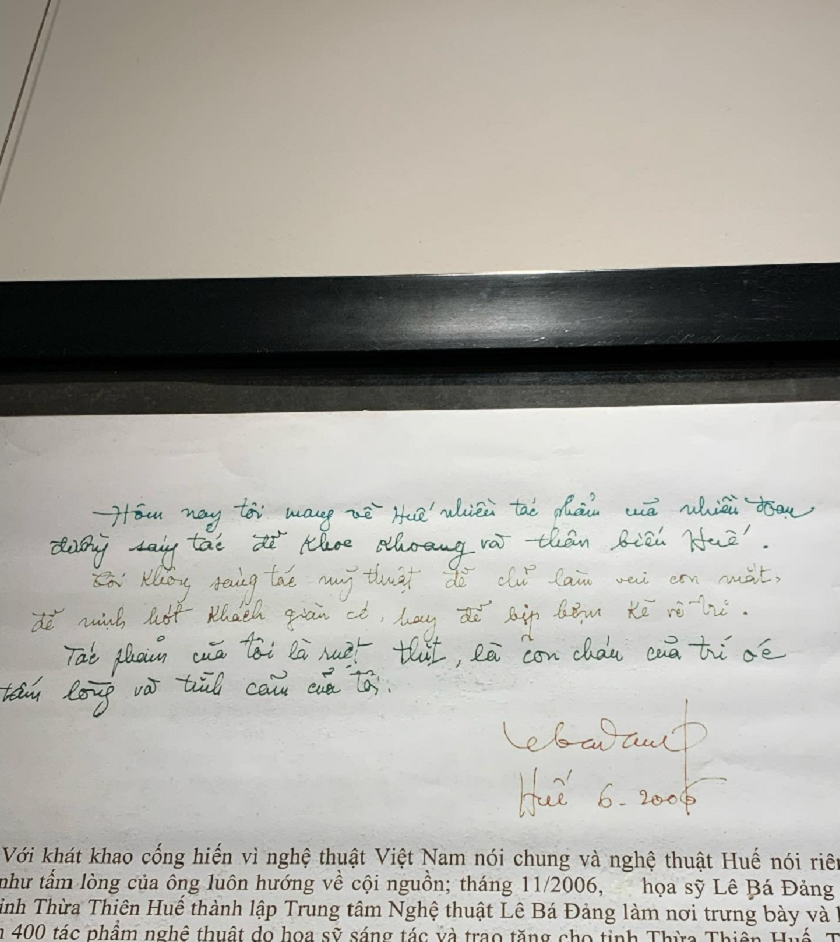 Hôm nay tôi mang về Huế nhiều tác phẩm của nhiều đoạn
đường sáng tác để khoe khoang và thân biếu Huế.
Tôi không sáng tác mỹ thuật để chỉ làm vui con mắt,
để nịnh hót khách giàu có, hay để bịp bợm kẻ vô tri.
Tác phẩm của tôi là ruột thịt, là con cháu của trí óc
tấm lòng và tình cảm của tôi.
lebadang
Huế 6-2006
Với khát khao cống hiến vì nghệ thuật Việt Nam nói chung và nghệ thuật Huế nói riên
như tấm lòng của ông luôn hướng về cội nguồn; tháng 11/2006, họa sỹ Lê Bá Đảng
ỉnh Thừa Thiên Huế thành lập Trung tâm Nghệ thuật Lê Bá Đảng làm nơi trưng bày và
400 tác phẩm nghệ thuật do họa sỹ sáng tác và trao tặng cho tỉnh Thừa Thiên Huế.